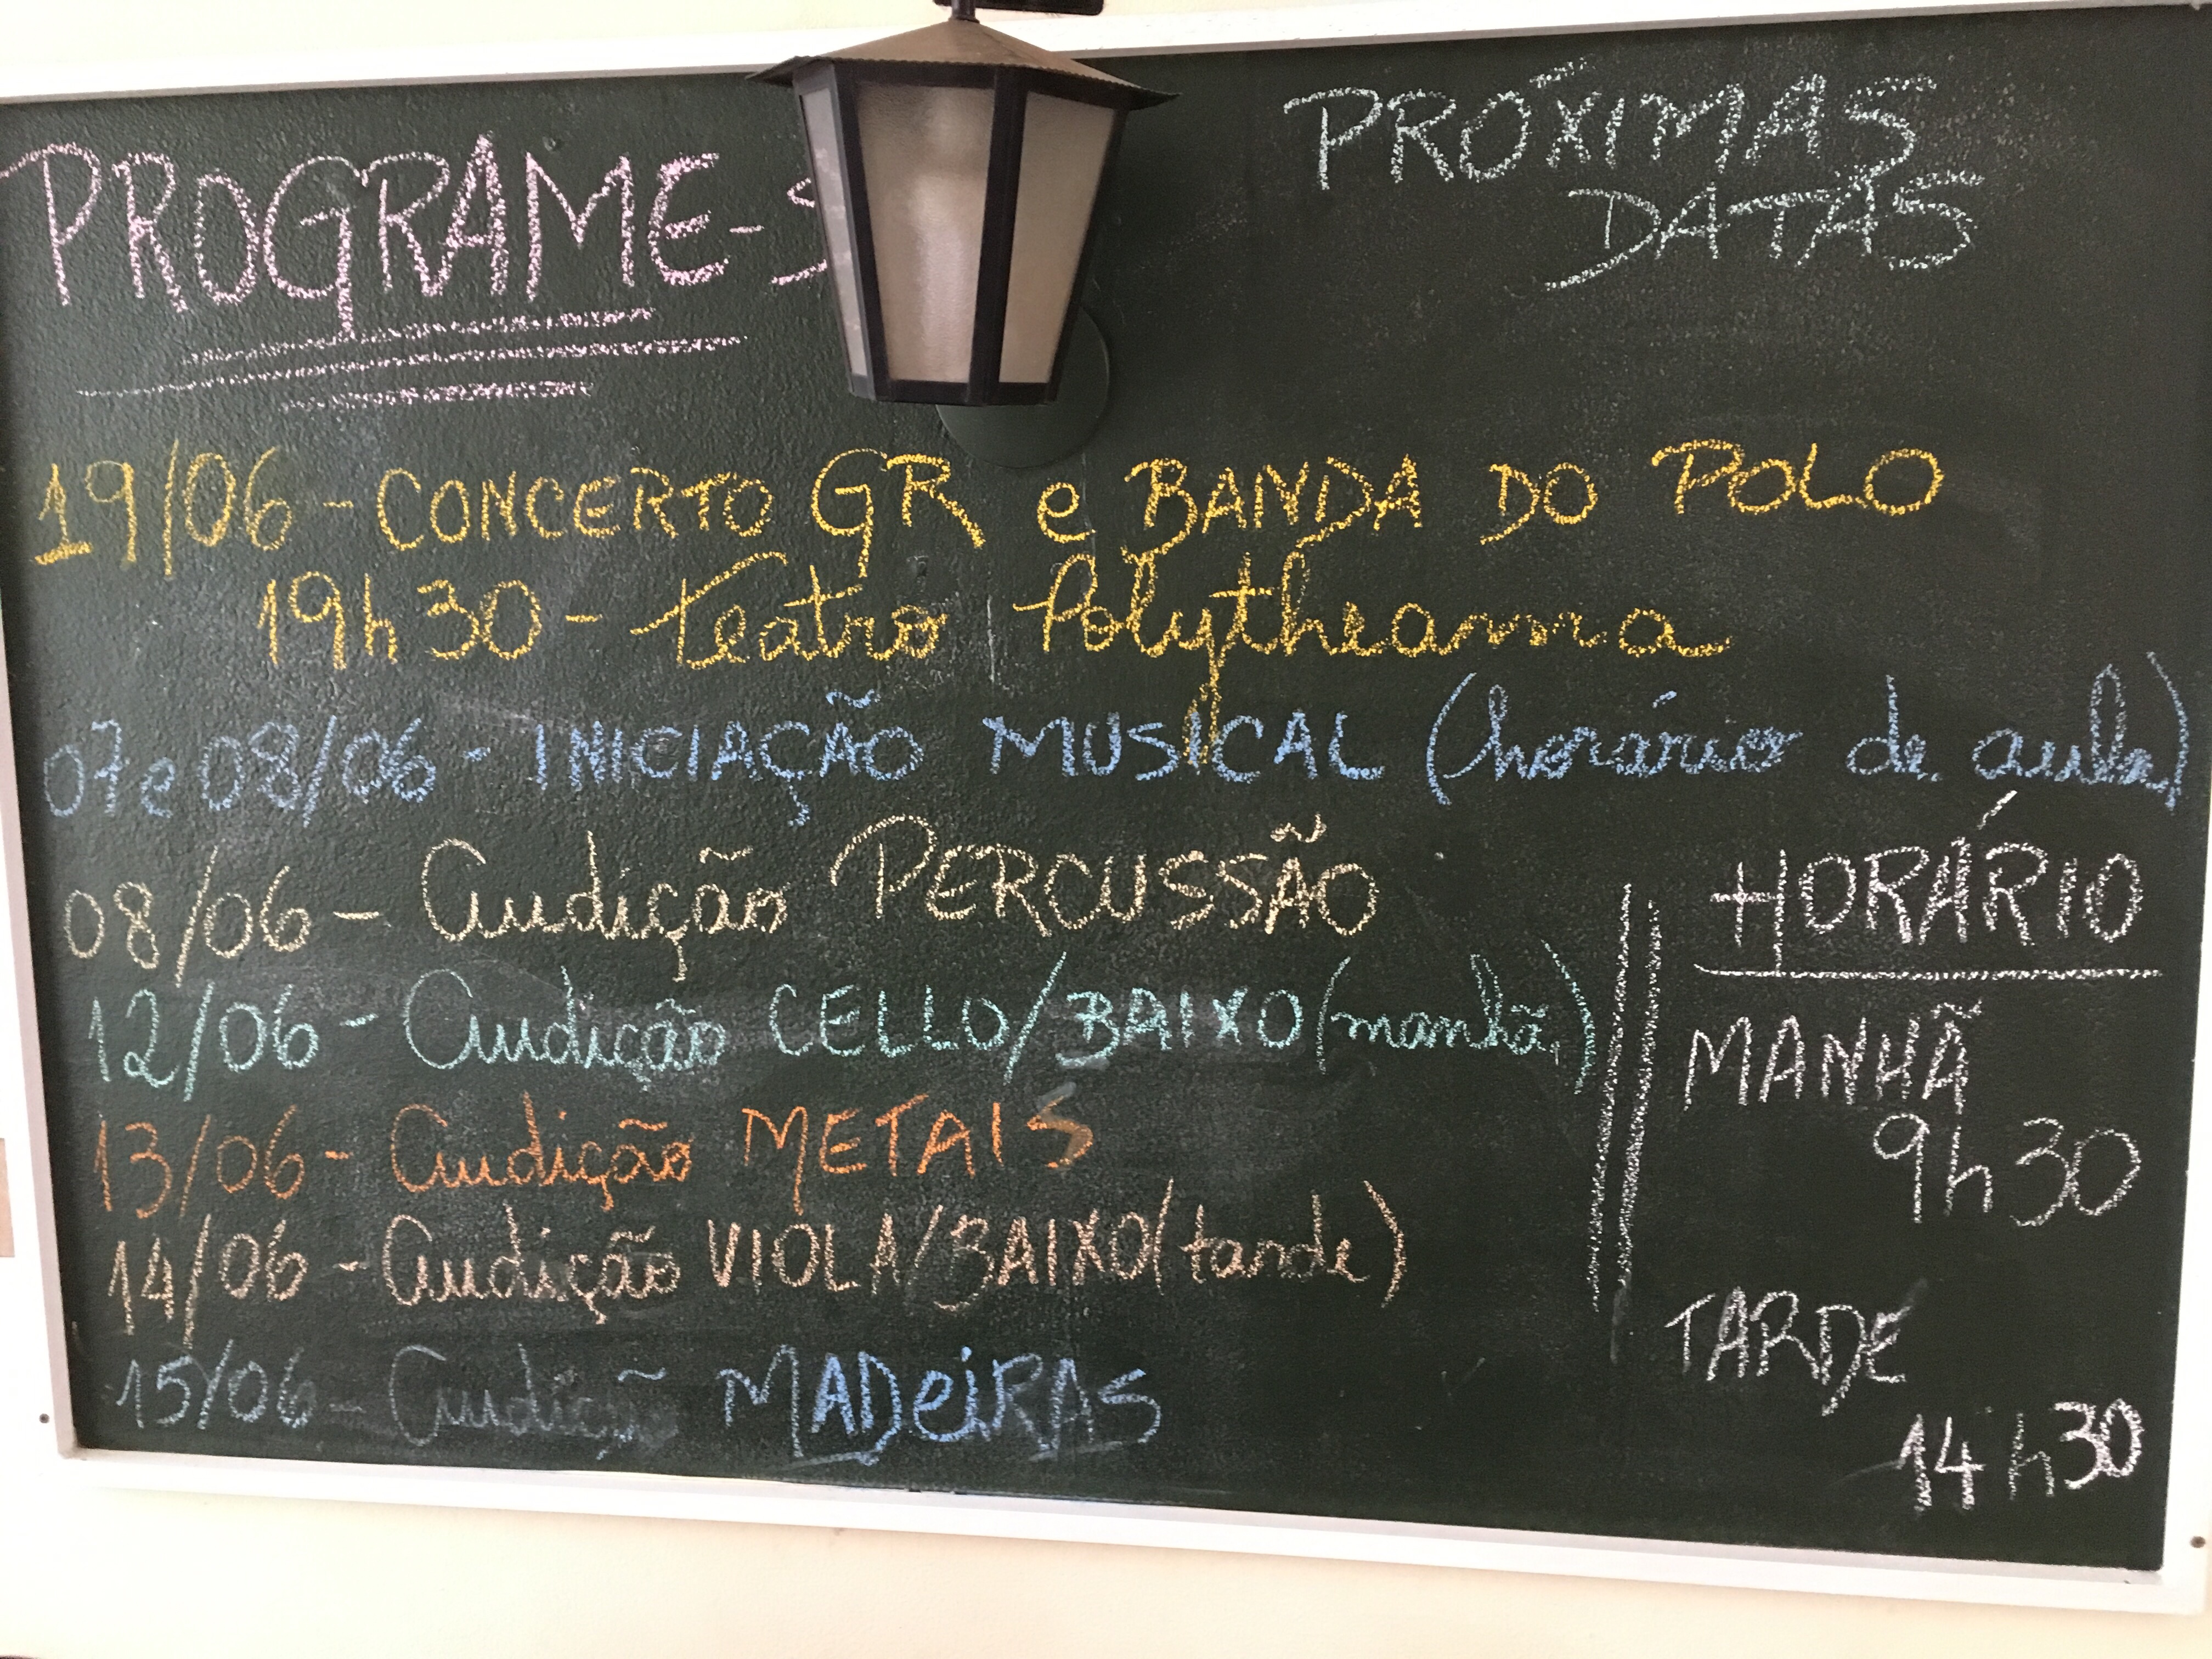 PROGRAME-S
PRÓXIMAS
DATAS
19/06 - CONCERTO GR e BANDA DO POLO
19h30 - Teatro Polytheama
07 e 08/06 - INICIAÇÃO MUSICAL (horário de aula)
08/06 - Audição PERCUSSÃO
12/06 - Audição CELLO/BAIXO (manhã)
13/06 - Audição METAIS
14/06 - Audição VIOLA/BAIXO (tarde)
15/06 - Audição MADEiRAS
HORÁRIO
MANHÃ
9h30
TARDE
14h30